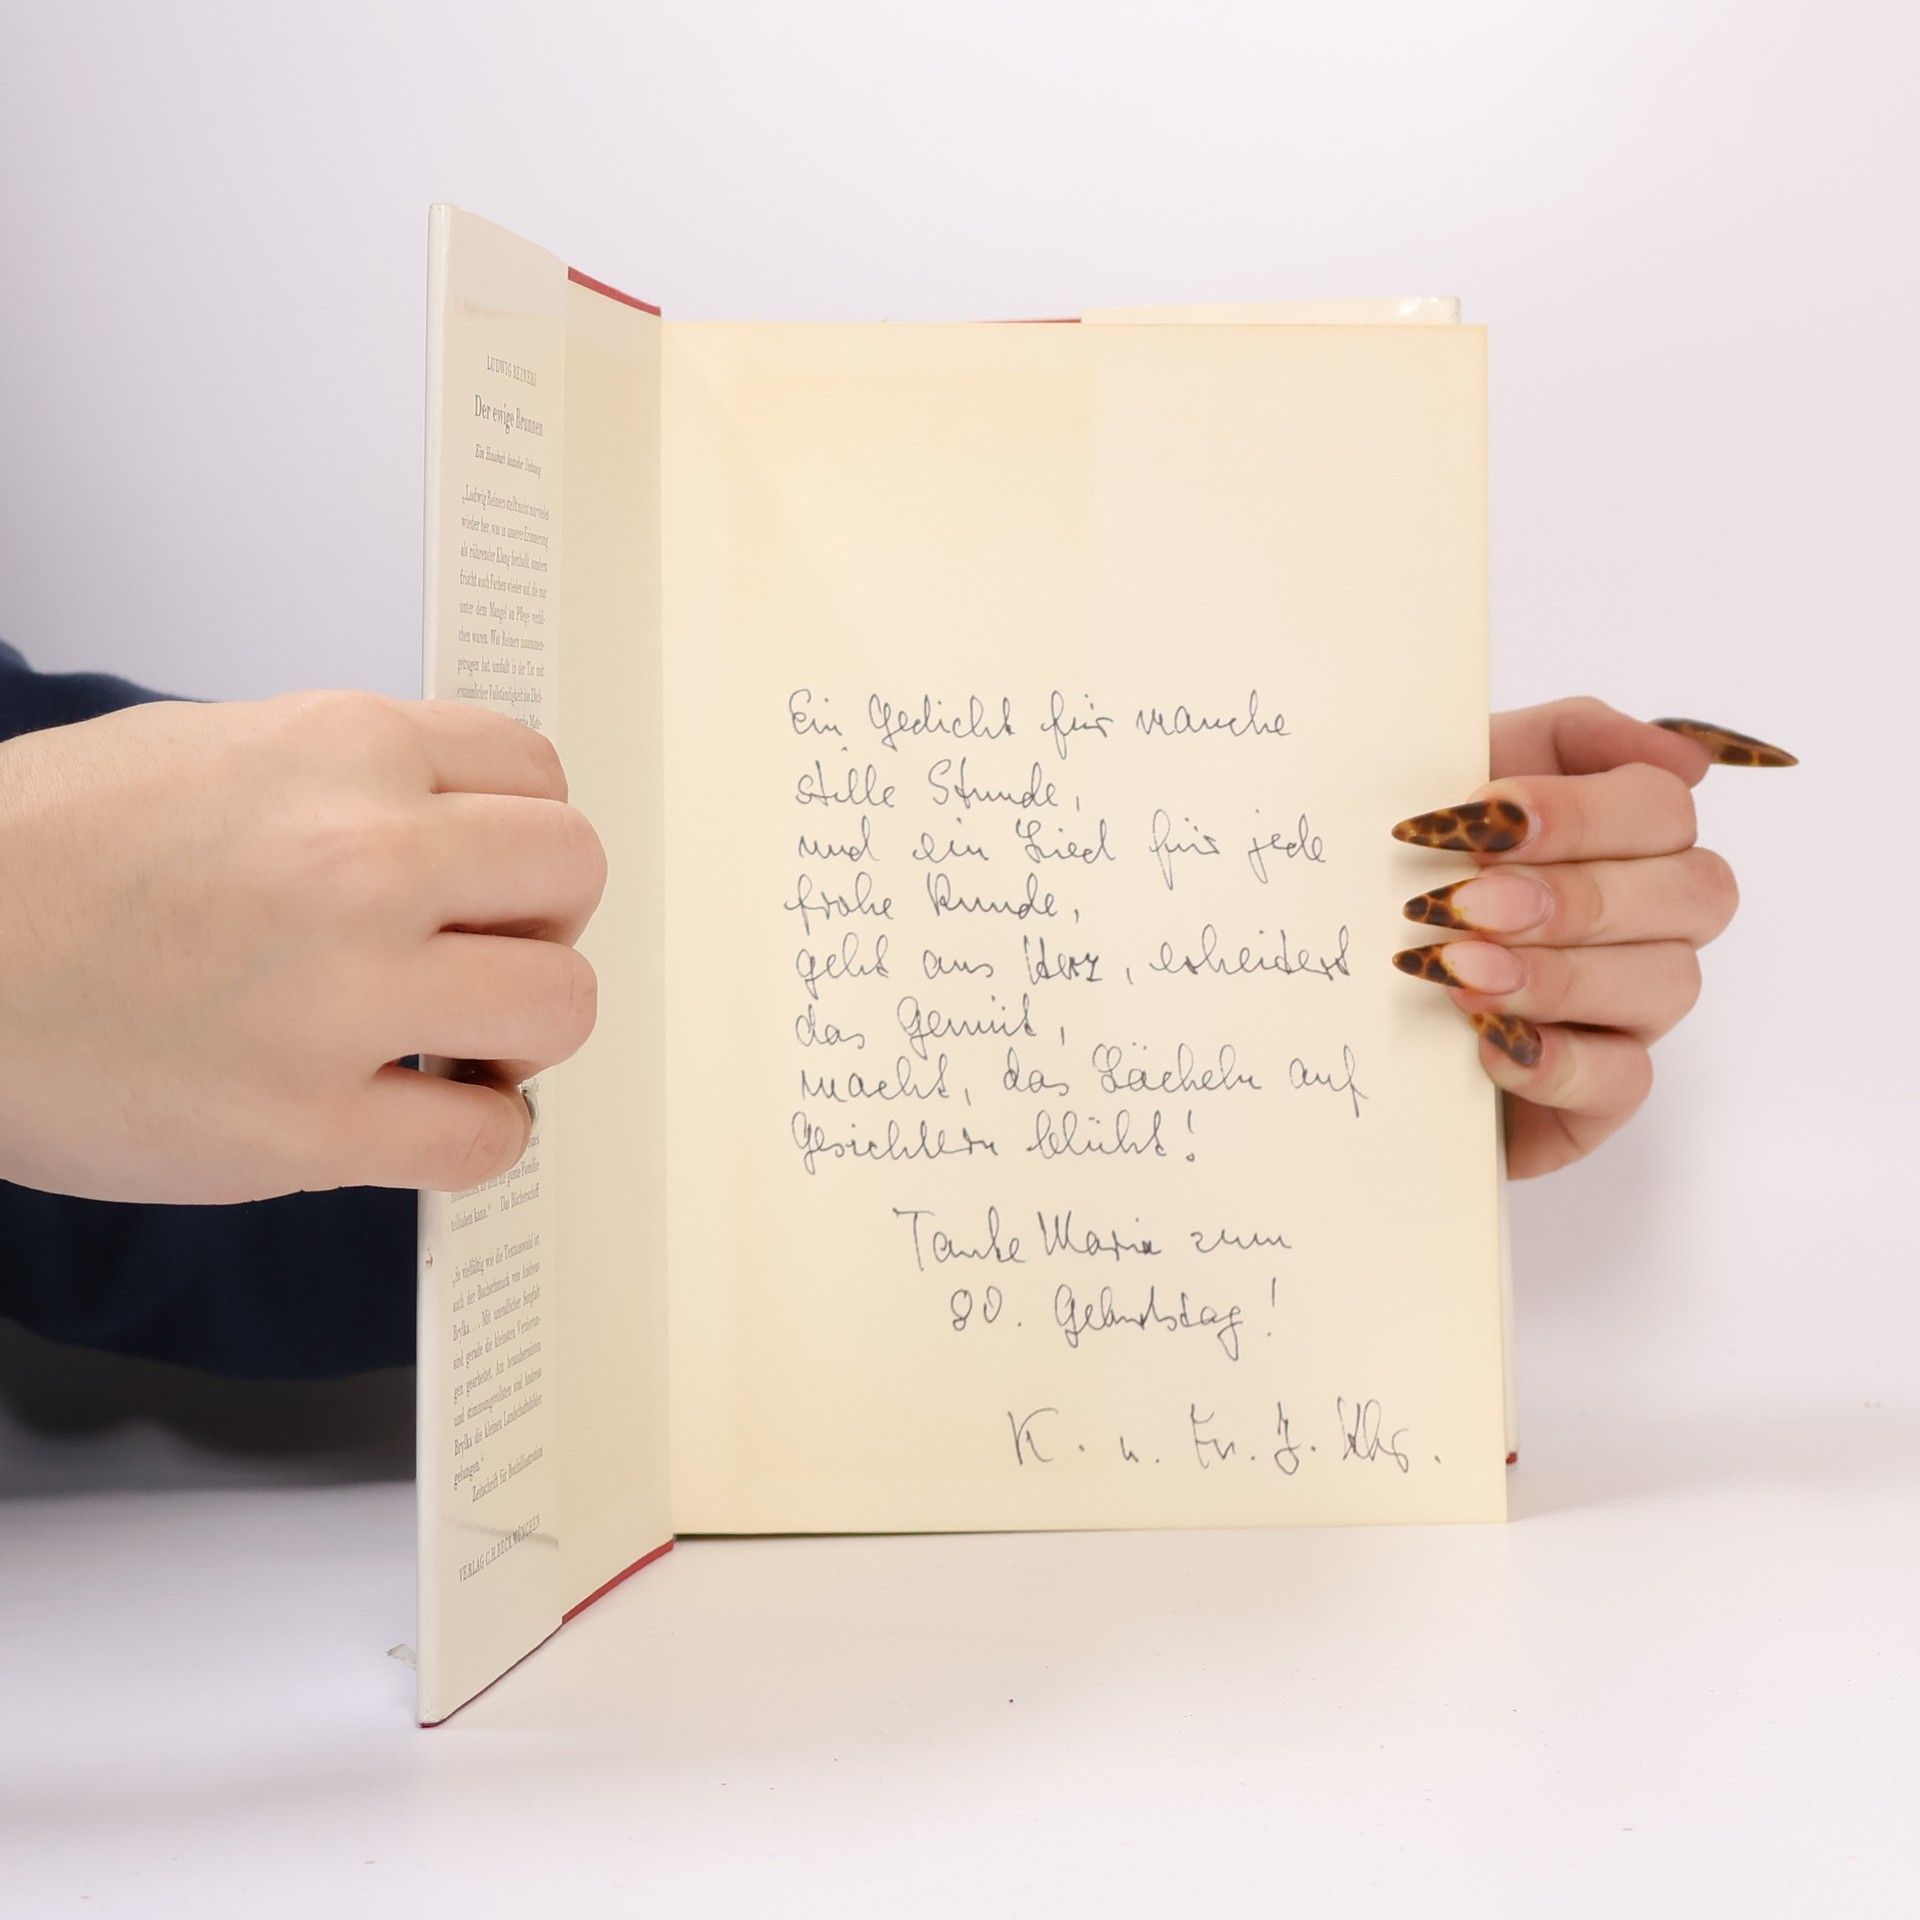 LUDWIG REINERS
Der ewige Brunnen
Ein Hausbuch deutscher Dichtung
„Ludwig Reiners stellt nicht nur vieles
wieder her, was in unserer Erinnerung
als rührender Klang forthallt, sondern
frischt auch Farben wieder auf, die nur
unter dem Mangel an Pflege verbli-
chen waren. Was Reiners zusammen-
getragen hat, umfaßt in der Tat mit
erstaunlicher Vollständigkeit des Dich-
die ganze Familie
teilhaben kann.“ Das Bücherschiff
„So vielfältig wie die Textauswahl ist
auch der Buchschmuck von Andreas
Brylka.... Mit unendlicher Sorgfalt
sind gerade die kleinsten Verzierun-
gen gearbeitet. Am bezauberndsten
und stimmungsvollsten sind Andreas
Brylka die kleinen Landschaftsbilder
gelungen.“
Zeitschrift für Buchillustration
VERLAG C.H.BECK MÜNCHEN
Ein Gedicht für manche
stille Stunde,
und ein Lied für jede
frohe Runde,
geht ans Herz, erheitert
das Gemüt,
macht, das Lächeln auf
Gesichtern blüht!
Tante Maria zum
80. Geburtstag!
K. u. Fr. J.